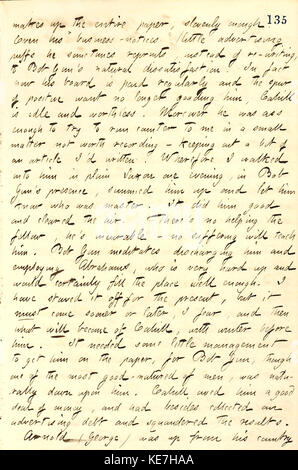 135
makes up the entire paper, slovenly enough.
Even his business-notices (little advertising
puffs he sometimes reprints instead of re-writing,
to Bob Gun's natural dissatisfaction. In fact
now his board is paid regularly and the spur
of positive want no longer goading him, Cahill
is idle and worthless. Moreover he was ass
enough to try to run counter to me in a small
matter not worth recording – keeping out a bit of
an article I'd written. Wherefore I walked
into him in plain Saxon one evening, in Bob
Gun's presence, summed him up and let him
know who was master. It did him good
and cleared the air. There's no helping the
fellow, he's incurable – no suffering will teach
him. Bob Gun meditates discharging him and
employing Abrahams, who is very hard up and
would certainly fill the place well enough. I
have staved it off for the present, but it
must come sooner or later, I fear, and then
what will become of Cahill, with winter before
him. It needed some little management
to get him on the paper, for Bob Gun, though
one of the most good-natured of men, was natu-
rally down upon him. Cahill owed him a good
deal of money, and had besides collected an
advertising debt and squandered the results.
Arnold (George) was up from his country
alamy
Image ID: KE7HAA
www.alamy.com